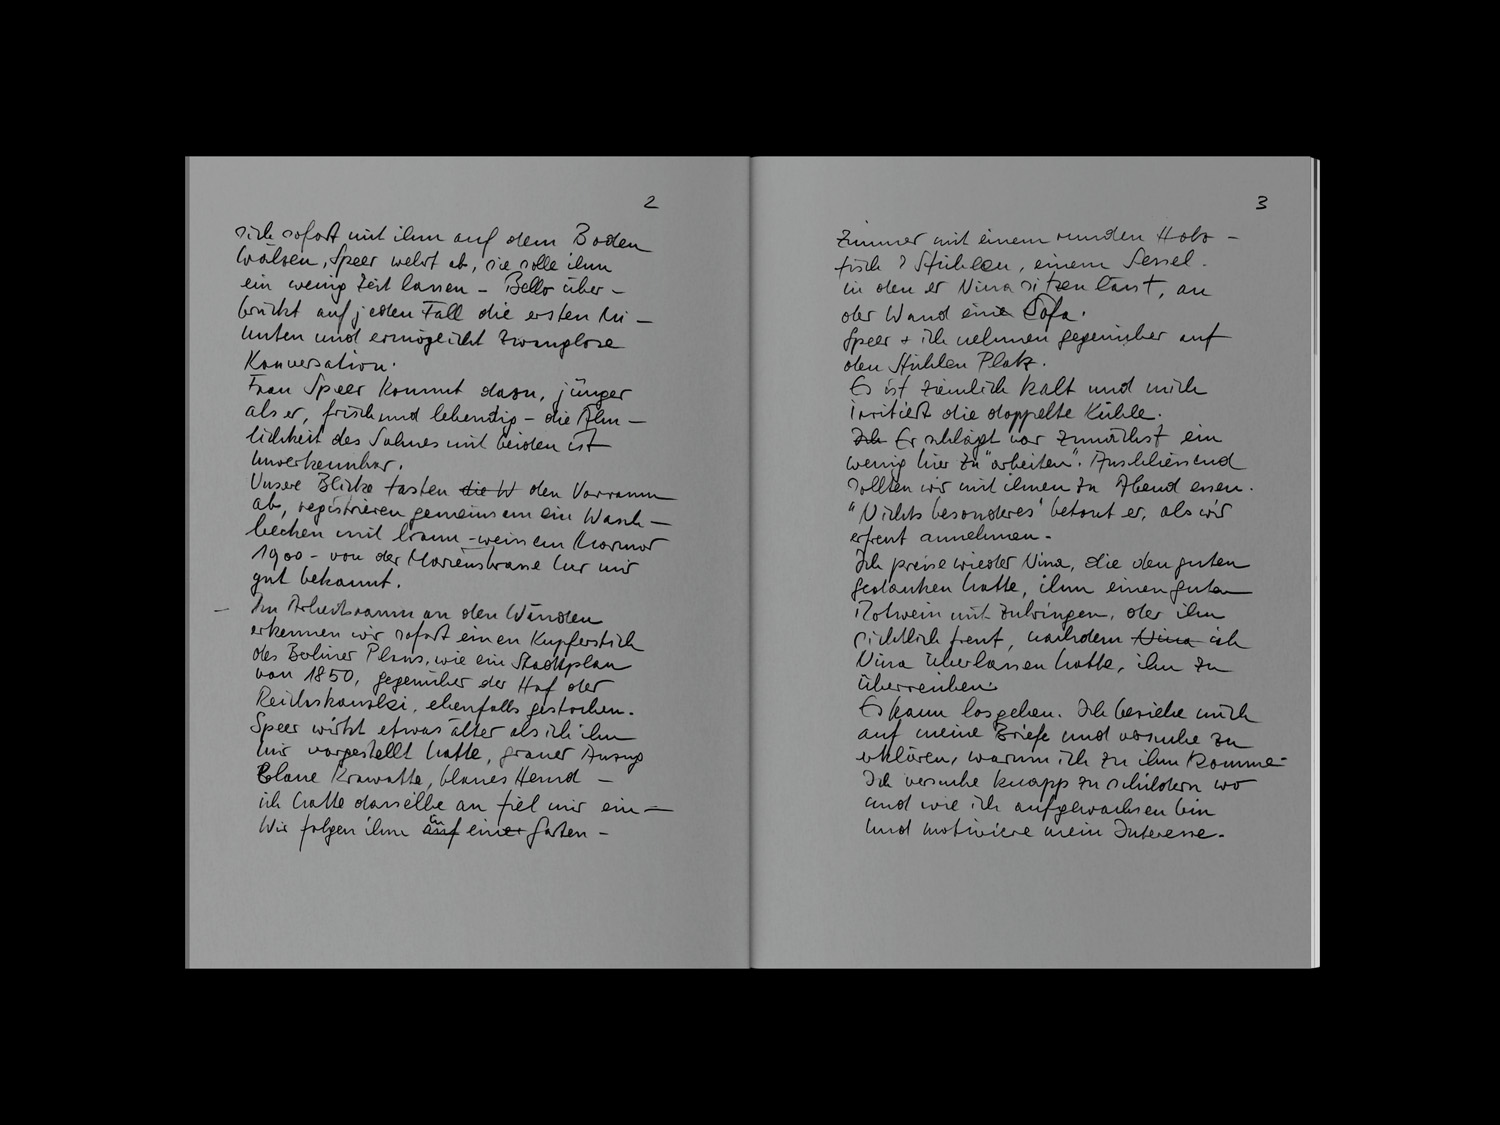 2
sich sofort mit ihm auf dem Boden
wälzen, Speer wehrt ab, sie solle ihm
ein wenig Zeit lassen – Bello über –
brückt auf jeden Fall die ersten Mi –
nuten und ermöglicht zwanglose
Konversation.
Frau Speer kommt dazu, jünger
als er, frisch und lebendig – die Ähn –
lichkeit des Sohnes mit beiden ist
unverkennbar.
Unsere Blicke tasten die W den Vorraum
ab, registrieren gemeinsam ein Wasch –
becken mit braun-weissem Marmor
1900 – von der Marienstrasse her mir
gut bekannt.
– Im Arbeitsraum an den Wänden
erkennen wir sofort einen Kupferstich
des Berliner Plans, wie ein Stadtplan
von 1850, gegenüber der Hof der
Reichskanzlei, ebenfalls gestochen.
Speer wirkt etwas älter als ich ihn
mir vorgestellt hatte, grauer Anzug
blaue Krawatte, blaues Hemd –
ich hatte dasselbe an fiel mir ein –
Wir folgen ihm auf in einer Garten –
3
Zimmer mit einem runden Holz –
tisch 2 Stühlen, einem Sessel.
in den er Nina sitzen lässt, an
der Wand eine Sofa.
Speer + ich nehmen gegenüber auf
den Stühlen Platz.
Es ist ziemlich kalt und mich
irritiert die doppelte Kühle.
Ich Er schlägt vor zunächst ein
wenig hier zu "arbeiten". Anschliessend
sollten wir mit ihnen zu Abend essen.
"Nichts besonderes" betont er, als wir
erfreut annehmen.
Ich preise wieder Nina, die den guten
Gedanken hatte, ihm einen guten
Rotwein mit zubringen, der ihn
sichtlich freut, nachdem Nina ich
Nina überlassen hatte, ihn zu
überreichen.
Es kann losgehen. Ich beziehe mich
auf meine Briefe und versuche zu
erklären, warum ich zu ihm komme.
Ich versuche knapp zu schildern wo
und wie ich aufgewachsen bin
und motiviere mein Interesse.